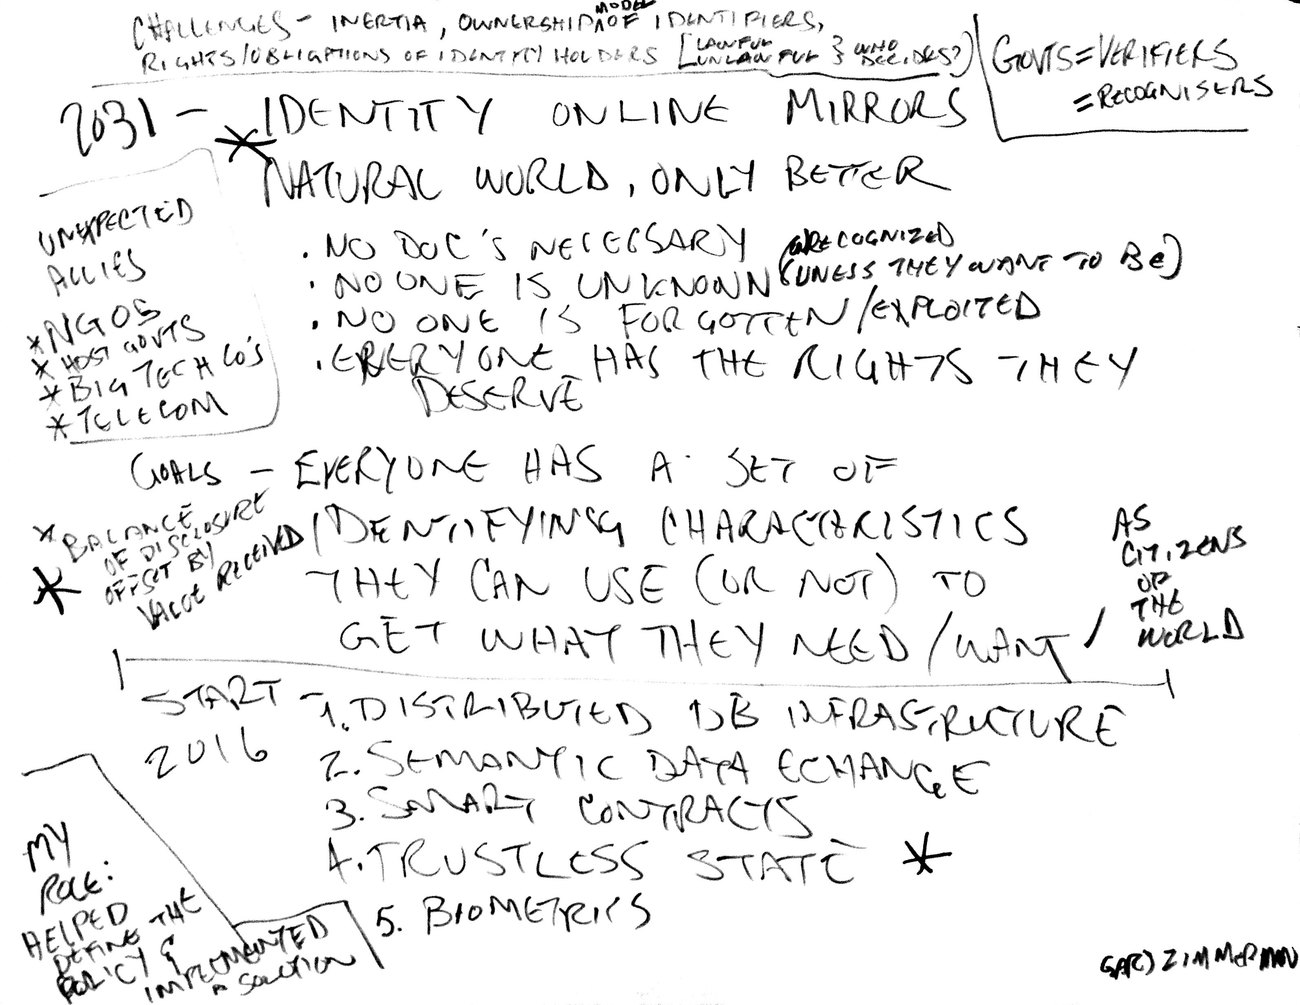 CHALLENGES - INERTIA, OWNERSHIP MODEL OF IDENTIFIERS,
RIGHTS/OBLIGATIONS OF IDENTITY HOLDERS [LAWFUL UNLAWFUL } & WHO DECIDES?)
GOVTS = VERIFIERS
= RECOGNISERS
2031 - IDENTITY ONLINE MIRRORS
* NATURAL WORLD, ONLY BETTER
. NO DOC'S NECESSARY
. NO ONE IS UNKNOWN (UNRECOGNIZED
(UNESS THEY WANT TO BE)
. NO ONE IS FORGOTTEN/EXPLOITED
. EVERYONE HAS THE RIGHTS THEY
DESERVE
UNEXPECTED
ALLIES
* NGOS
* HOST GOVTS
* BIG TECH CO'S
* TELECOM
GOALS - EVERYONE HAS A SET OF
IDENTIFYING CHARACTERISTICS
THEY CAN USE (OR NOT) TO
GET WHAT THEY NEED/WANT/
AS
CITIZENS
OF
THE
WORLD
* BALANCE
OF DISCLOSURE
OFFSET BY
VALUE RECEIVED
*
START - 1. DISTRIBUTED DB INFRASTRUCTURE
2016
2. SEMANTIC DATA ECHANGE
3. SMART CONTRACTS
4. TRUSTLESS STATE *
5. BIOMETRICS
MY
ROLE:
HELPED
DEFINE THE
POLICY &
IMPLEMENTED
A SOLUTION
GARY ZIMMERMAN